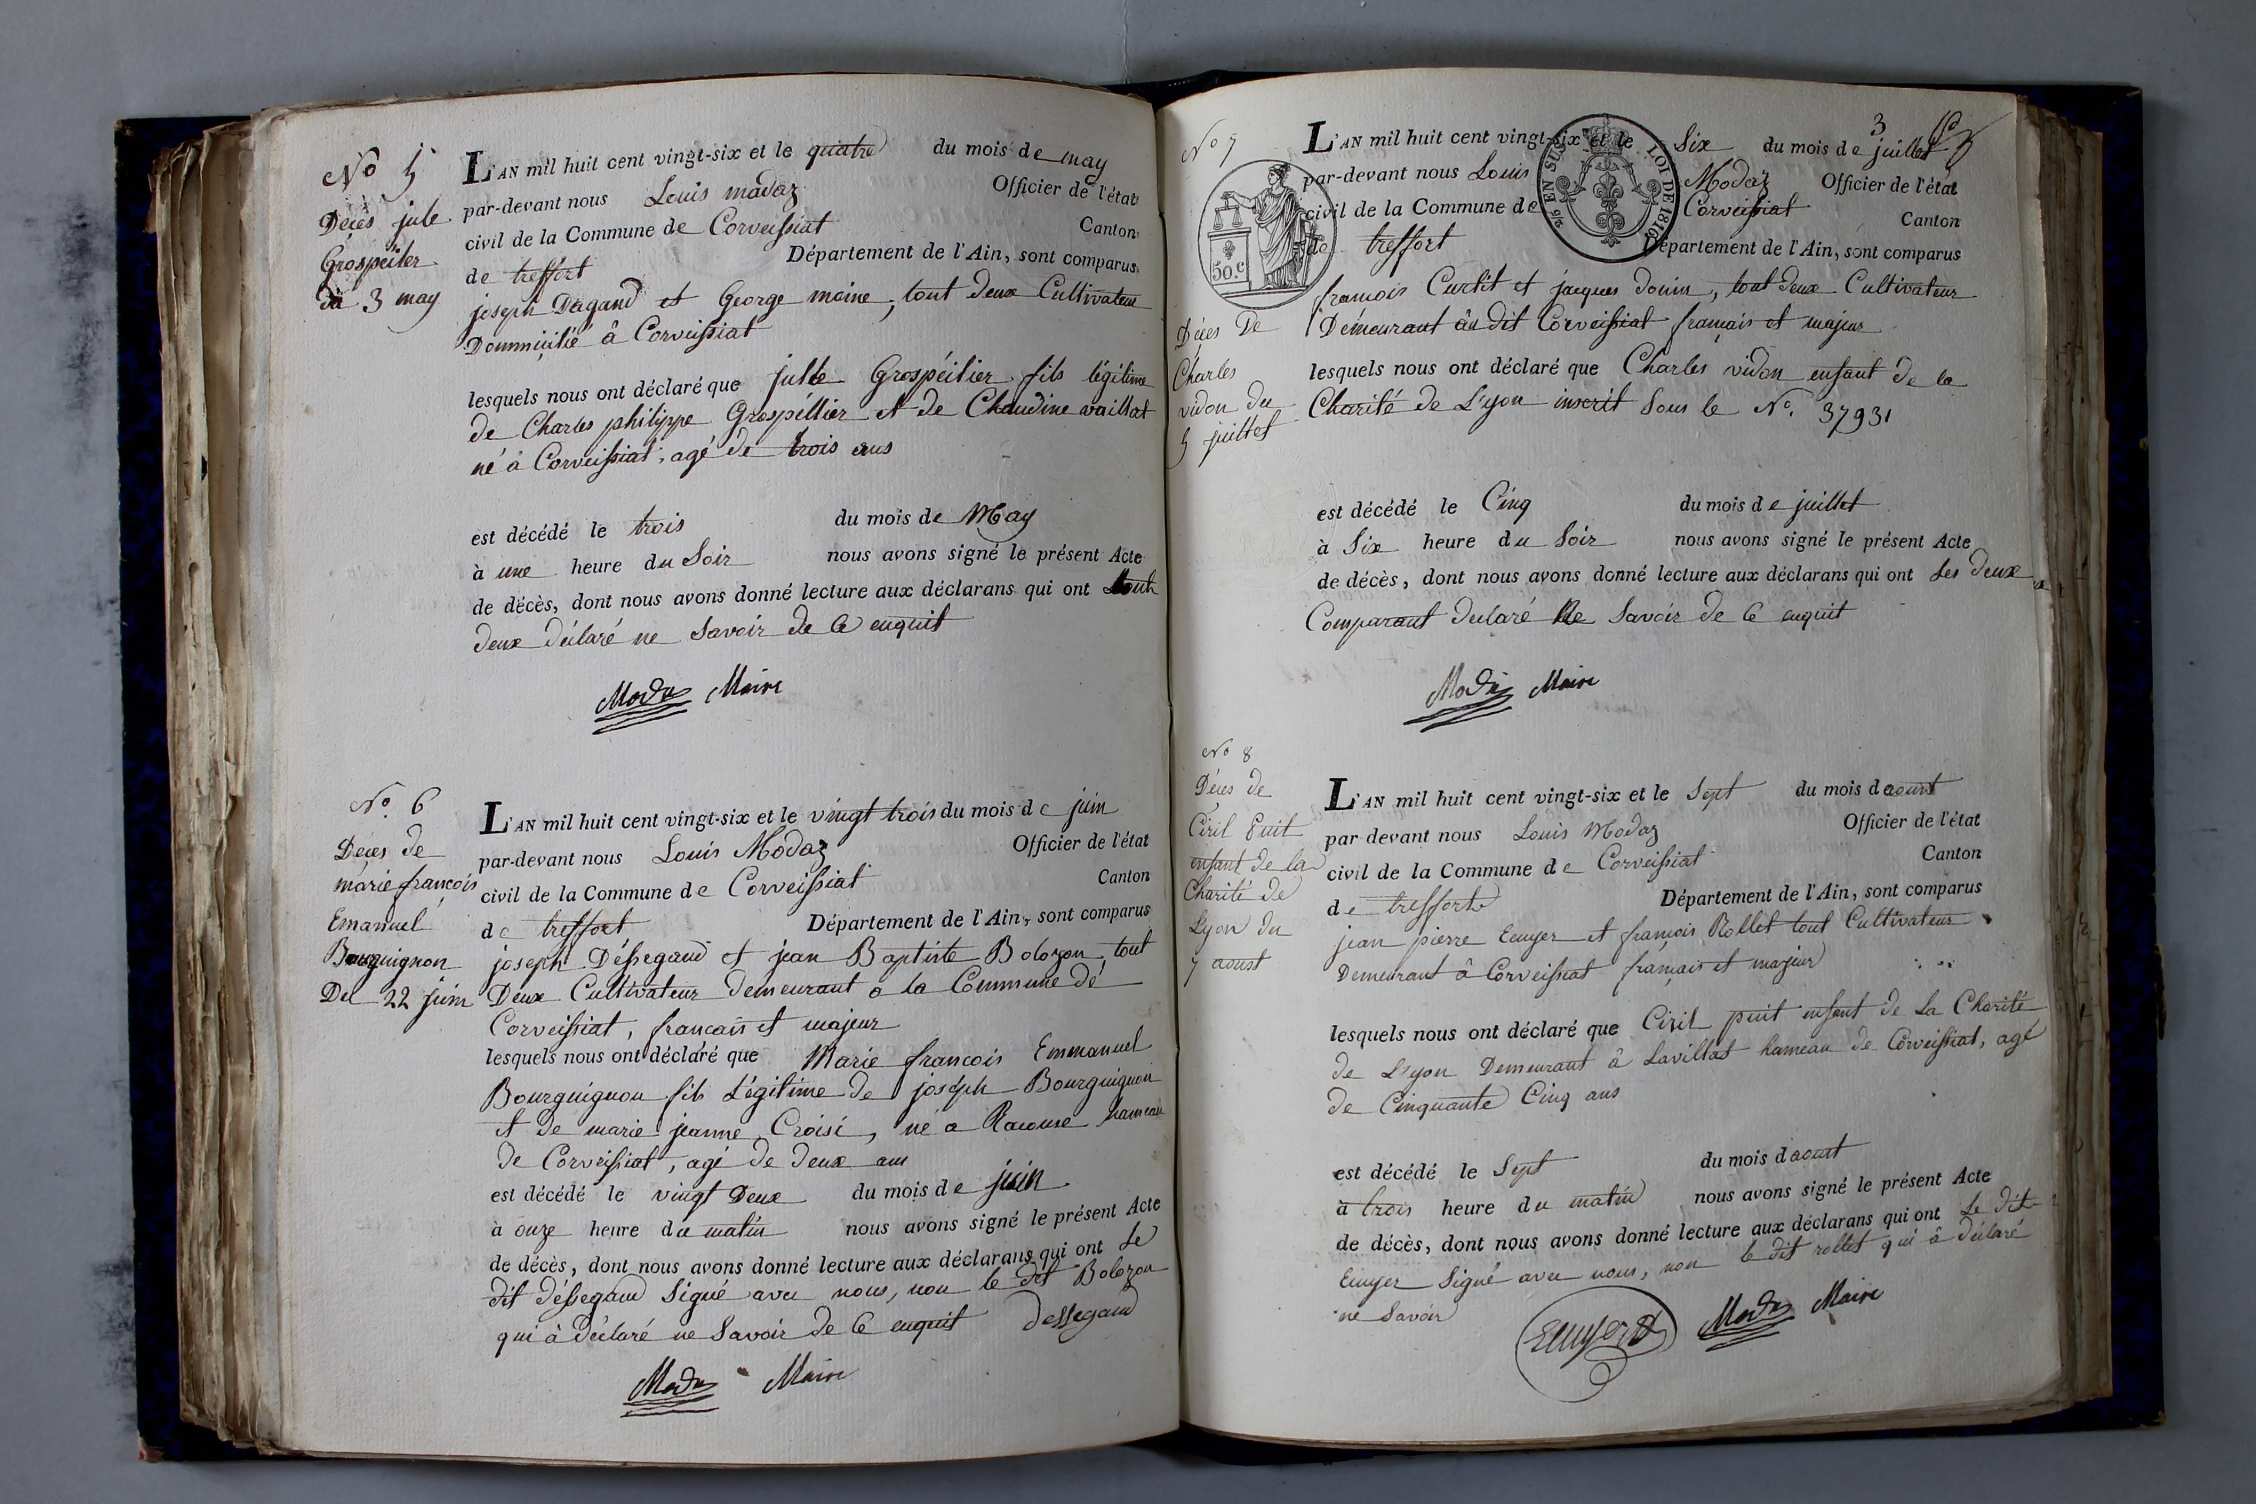 No 5
Décès jule
Grospeiler
du 3 may
L'AN mil huit cent vingt-six et le quatre du mois de may
par-devant nous Louis modaz Officier de l'état
civil de la Commune de Corveissiat Canton
de treffort Département de l'Ain, sont comparus
joseph Dagand et George moine, tout deux Cultivateur
Dommicilié à Corveissiat
lesquels nous ont déclaré que julle Grospéilier fils légitime
de Charles philippe Grospéllier et de Claudine vaillat
né à Corveissiat, agé de trois ans
est décédé le trois du mois de May
à une heure du Soir nous avons signé le présent Acte
de décès, dont nous avons donné lecture aux déclarans qui ont touts
deux déclaré ne Savoir de Ce enquit
Modaz Maire
No. 6
Décès de
marie françois
Emanuel
Bourguignon
Del 22 juin
L'AN mil huit cent vingt-six et le vingt trois du mois de juin
par-devant nous Louis Modaz Officier de l'état
civil de la Commune de Corveissiat Canton
de treffort Département de l'Ain, sont comparus
joseph Déssegand et jean Baptiste Bolozon tout
Deux Cultivateur demeurant a la Commune de
Corveissiat, francais et majeur
lesquels nous ont déclaré que Marie francois Emmanuel
Bourguignon fils Légitime de joseph Bourguignon
et De marie jeanne Croisi, né a Racouse hameau
de Corveissiat, agé de deux ans
est décédé le vingt Deux du mois de juin
à onze heure du matin nous avons signé le présent Acte
de décès, dont nous avons donné lecture aux déclarans qui ont Le
dit déssegand Signé avec nous, non le dit Bolozon
qui à déclaré ne Savoir de Ce enquit Dessegand
Modaz Maire
No 7
3
L'AN mil huit cent vingt-six et le Six du mois de juillet
par-devant nous Louis Modaz Officier de l'état
civil de la Commune de Corveissiat Canton
de treffort Département de l'Ain, sont comparus
EN SUS LOI DE 1816
50.c
françois Curtit et jacques donin, tout deux Cultivateur
Démeurant au dit Corveissiat français et majeur
Décès De
Charles
vidon du
5 juillet
lesquels nous ont déclaré que Charles vidon enfant de la
Charité de L'yon inscrit Sous le No. 37931
est décédé le Cinq du mois de juillet
à Six heure du Soir nous avons signé le présent Acte
de décès, dont nous avons donné lecture aux déclarans qui ont les deux
Comparant declaré Ne Savoir de Ce enquit
Modaz Maire
No 8
Décès de
Ciril Puit
enfant de la
Charité de
Lyon du
7 aoust
L'AN mil huit cent vingt-six et le Sept du mois d aoust
par devant nous Louis Modaz Officier de l'état
civil de la Commune de Corveissiat Canton
de treffort Département de l'Ain, sont comparus
jean pierre Ecuyer et françois Rollet tout Cultivateur
Demeurant à Corveissiat français et majeur
lesquels nous ont déclaré que Ciril puit enfant de La Charité
de L'yon Demeurant à Lavillat hameau de Corveissiat, agé
de Cinquante Cinq ans
est décédé le Sept du mois d aoust
à trois heure du matin nous avons signé le présent Acte
de décès, dont nous avons donné lecture aux déclarans qui ont Le dit
Ecuyer Signé avec nous, non le dit rollet qui à déclaré
ne Savoir
Ecuyer Modaz Maire